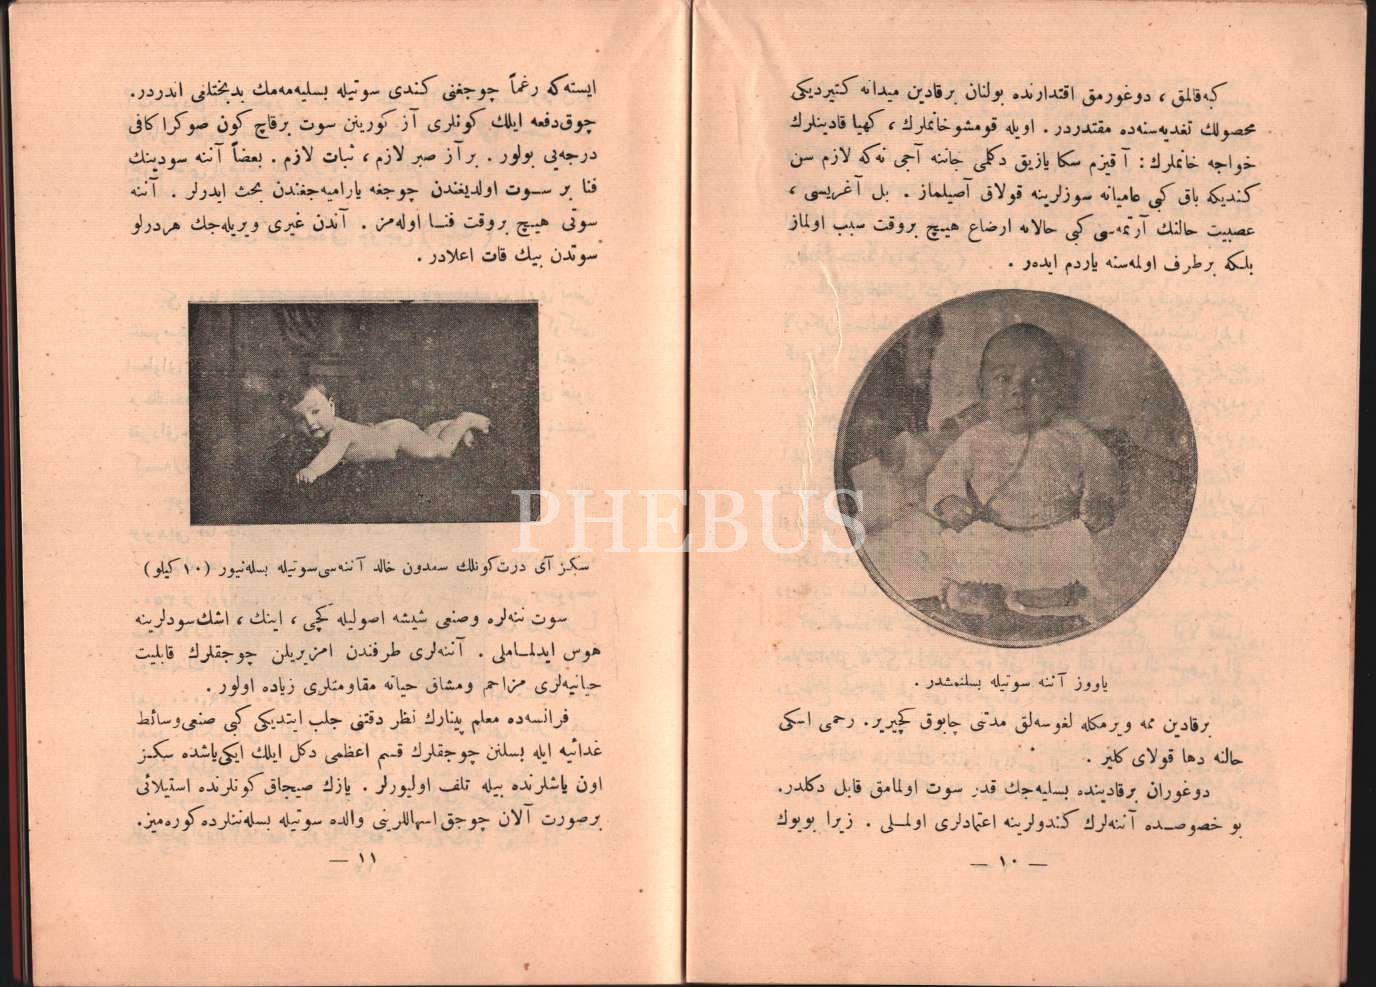 كبه قالمق ، دوغورمق اقتدارنده بولنان برقادين ميدانه كتيرديكى
محصولك تغديه سنه ده مقتدردر . اويله قومشو خانملرك ، كهيا قادينلرك
خواجه خانملرك : آ قيزم سكا يازيق دكلمى جاننه آجى نه كه لازم سن
كنديكه باق كبى عاميانه سوزلرينه قولاق آصيلماز . بل آغريسى ،
عصبيت حالنك آرتمه سى كبى حالاته ارضاع هيچ بروقت سبب اولماز
بلكه برطرف اولمه سنه ياردم ايده ر .
ياووز آننه سوتيله بسلنمشدر .
برقادين ممه ويرمكله لغوسه لق مدتنى چابوق كچيرير . رحمى اسكى
حالنه دها قولاى كلير .
دوغوران برقادينده بسليه جك قدر سوت اولمامق قابل دكلدر .
بو خصوصده آننه لرك كندولرينه اعتمادلرى اولملى . زيرا بويوك
— ١٠ —
ايسته كه رغماً چوجغنى كندى سوتيله بسليه مه مك بدبختلغى اندردر .
چوق دفعه ايلك كونلرى آز كورينن سوت برقاچ كون صوكرا كافى
درجه يى بولور . برآز صبر لازم ، ثبات لازم . بعضاً آننه سودينك
فنا بر سوت اولديغندن چوجغه ياراميه جغندن بحث ايدرلر . آننه
سوتى هيچ بروقت فنا اوله مز . آندن غيرى ويريله جك هردرلو
سوتدن بيك قات اعلادر .
سكز آى درت كونلك سعدون خالد آننه سى سوتيله بسله نيور (١٠ كيلو)
سوت ننه لره وصنعى شيشه اصوليله كچى ، اينك ، اشك سودلرينه
هوس ايدلماملى . آننه لرى طرفندن امزيريلن چوجقلرك قابليت
حياتيه لرى مزاحم ومشاق حياته مقاومتلرى زياده اولور .
فرانسه ده معلم پينارك نظر دقتنى جلب ايتديكى كبى صنعى وسائط
غدائيه ايله بسلنن چوجقلرك قسم اعظمى دكل ايلك ايكى ياشده سكز
اون ياشلرنده بيله تلف اوليورلر . يازك صيجاق كونلرنده استيلائى
برصورت آلان چوجق اسهاللرينى والده سوتيله بسله ننلرده كوره ميز .
— ١١ —
PHEBUS